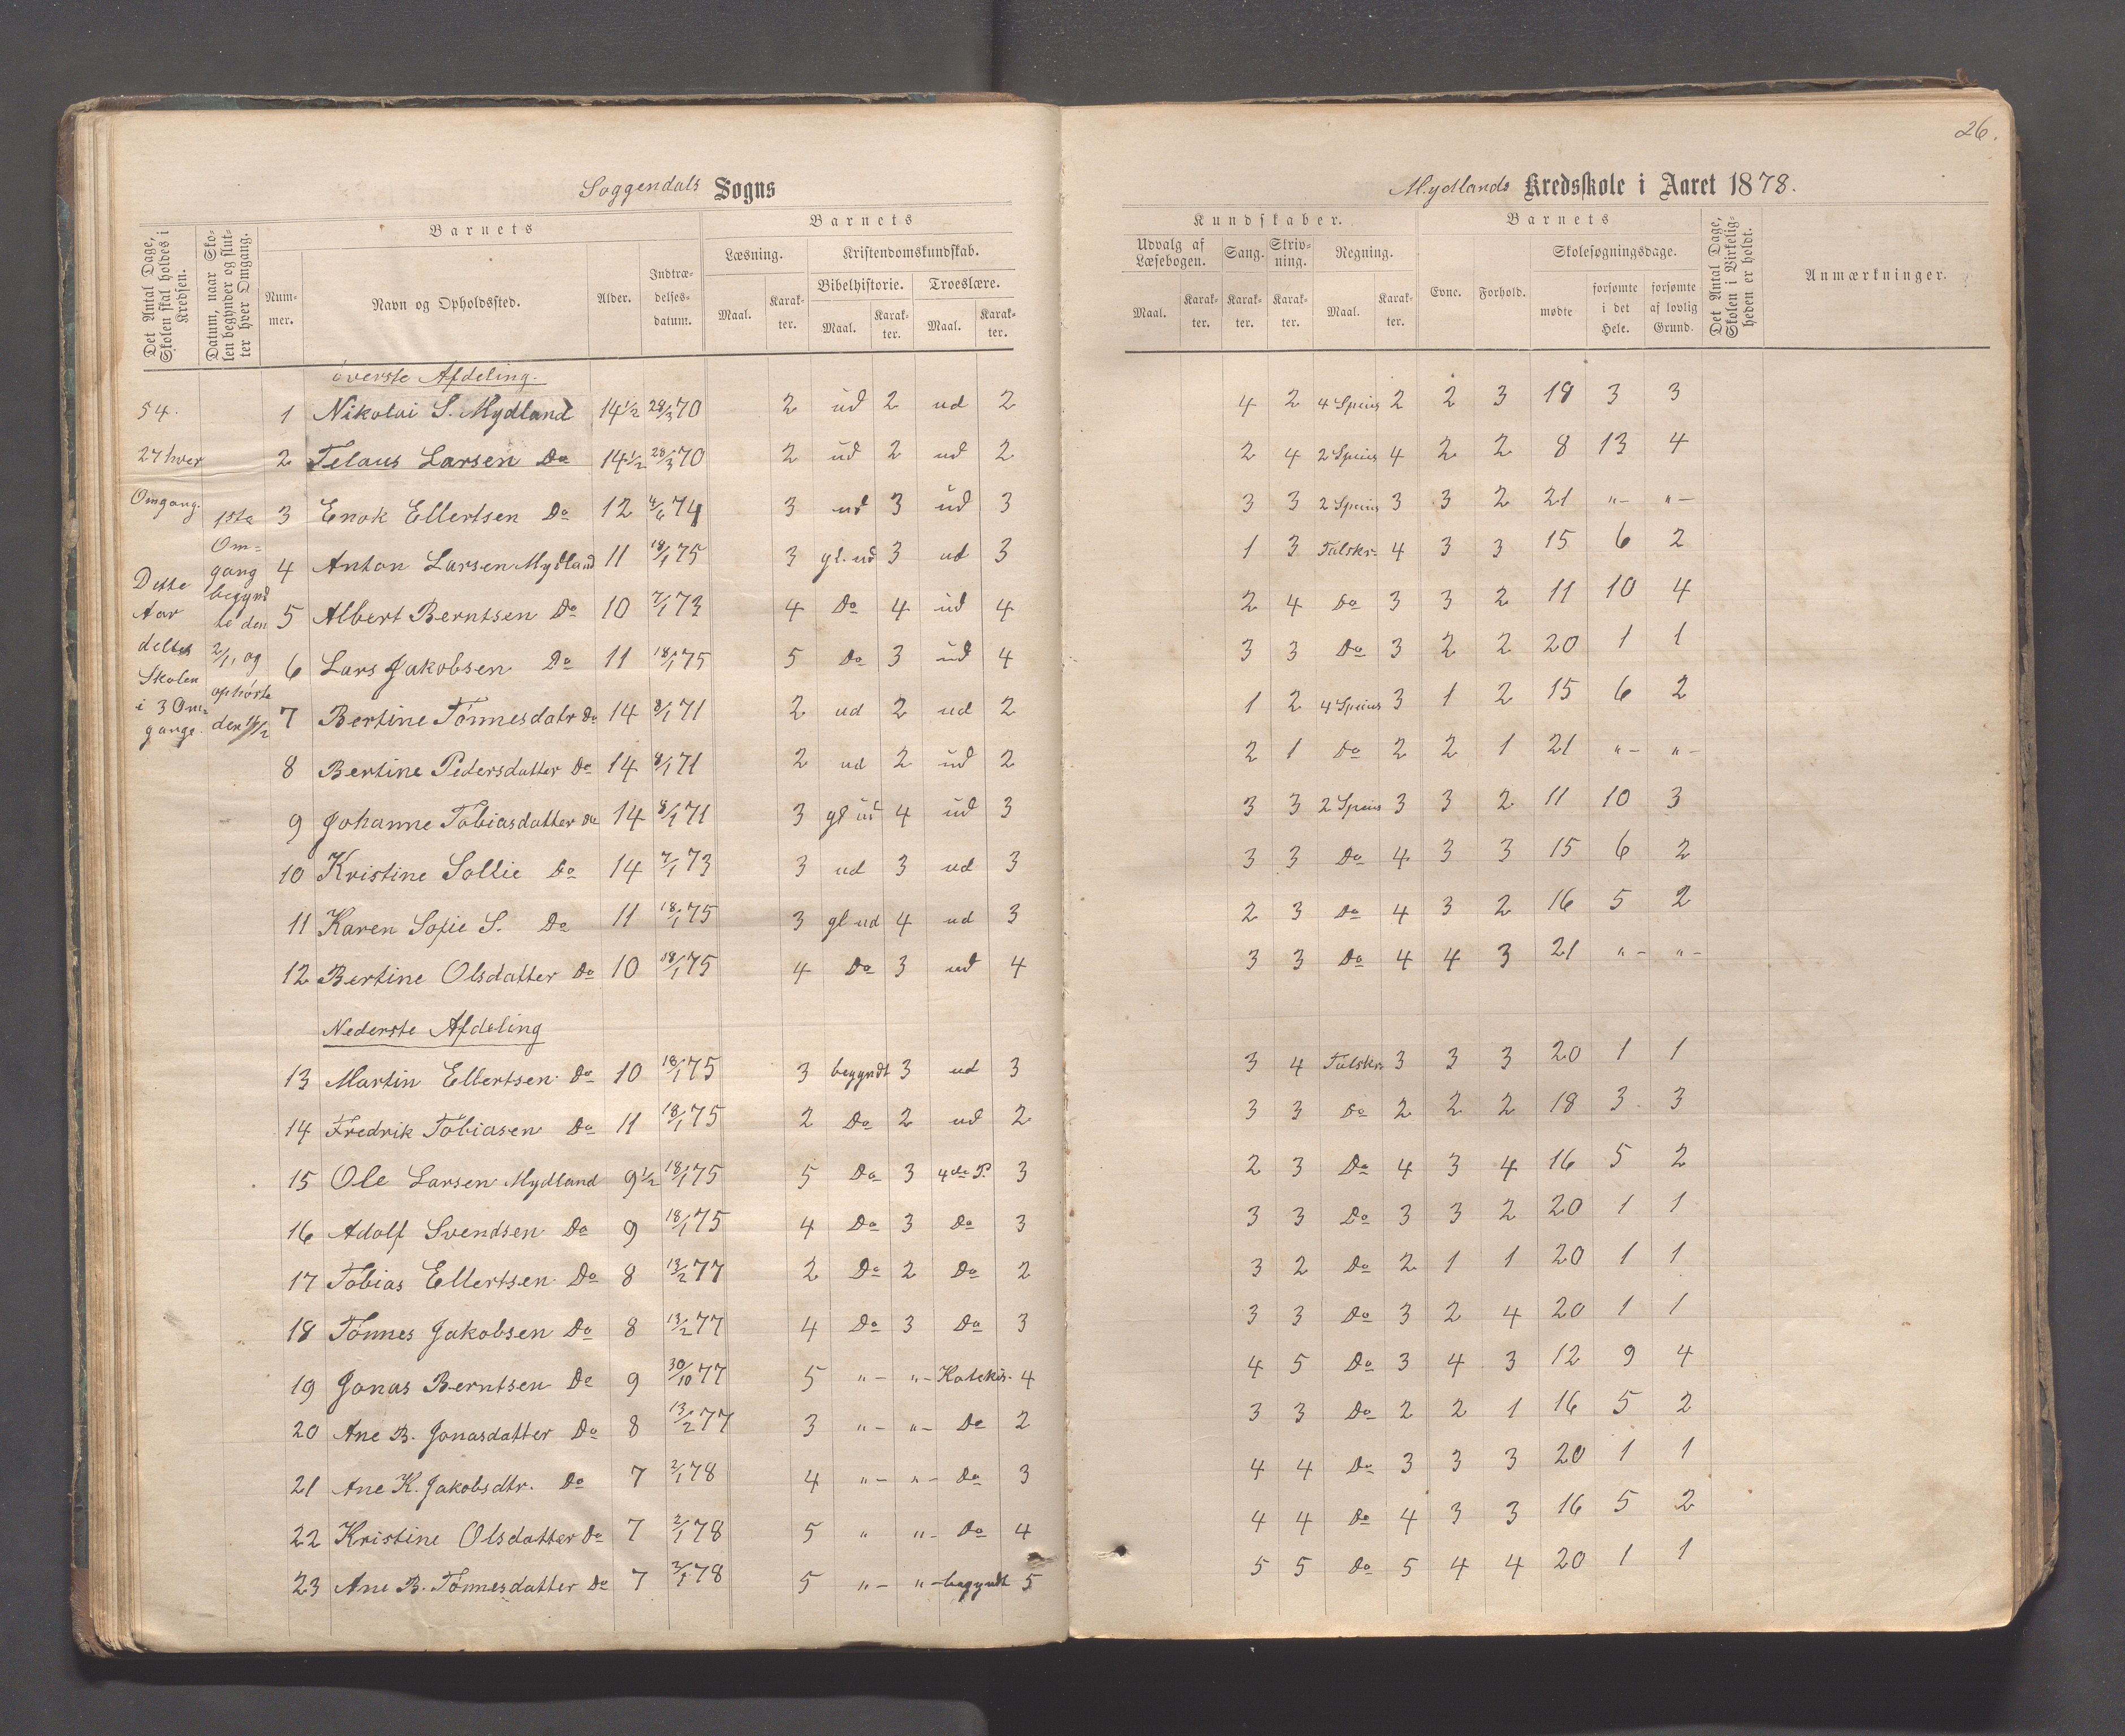 26.
Soggendals Sogns
Mydlands Kredsskole i Aaret 1878.
Det Antal Dage, Skolen skal holdes i Kredsen.
Datum, naar Skolen begynder og slutter hver Omgang.
Barnets
Nummer.
Navn og Opholdssted.
Alder.
Indtrædelsesdatum.
Barnets
Læsning.
Kristendomskundskab.
Bibelhistorie. Troeslære.
Maal. Karakter. Maal. Karakter. Maal. Karakter.
Kundskaber.
Udvalg af Læsebogen.
Sang. Skrivning. Regning.
Maal. Karakter. Karakter. Karakter. Maal. Karakter.
Barnets
Evne. Forhold.
Skolesøgningsdage.
mødte forsømte i det Hele. forsømte af lovlig Grund.
Det Antal Dage, Skolen i Virkeligheden er holdt.
Anmærkninger.
54.
27 hver
Omgang.
Dette
Aar
deltes
Skolen
i 3 Om-
gange.
1ste
Om-
gang
begynd
te den
2/1, og
ophørte
øverste Afdeling.
1 Nikolai S. Mydland 14½ 28/3 70 2 ud 2 ud 2 4 2 4 Speius 2 2 3 18 3 3
2 Telaus Larsen Do 14½ 28/3 70 2 ud 2 ud 2 2 4 2 Speius 4 2 2 8 13 4
3 Enok Ellertsen Do 12 4/6 74 3 ud 3 ud 3 3 3 2 Speius 3 3 2 21 "- "-
4 Anton Larsen Mydland 11 18/1 75 3 gl. ud 3 ud 3 1 3 Talskr. 4 3 3 15 6 2
5 Albert Berntsen Do 10 7/1 73 4 Do 4 ud 4 2 4 Do 3 3 2 11 10 4
6 Lars Jakobsen Do 11 18/1 75 5 Do 3 ud 4 3 3 Do 3 2 2 20 1 1
7 Bertine Tønnesdatr Do 14 8/1 71 2 ud 2 ud 2 1 2 4 Speius 3 1 2 15 6 2
8 Bertine Pedersdatter Do 14 8/1 71 2 ud 2 ud 2 2 1 Do 2 2 1 21 "- "-
9 Johanne Tobiasdatter Do 14 8/1 71 3 gl ud 4 ud 3 3 3 2 Speius 3 3 2 11 10 3
10 Kristine Sollie Do 14 7/1 73 3 ud 3 ud 3 3 3 Do 4 3 3 15 6 2
11 Karen Sofie S. Do 11 18/1 75 3 gl ud 4 ud 3 2 3 Do 4 3 2 16 5 2
12 Bertine Olsdatter Do 10 18/1 75 4 Do 3 ud 4 3 3 Do 4 4 3 21 "- "-
Nederste Afdeling
13 Martin Ellertsen Do 10 18/1 75 3 begyndt 3 ud 3 3 4 Talskr. 3 3 3 20 1 1
14 Fredrik Tobiasen Do 11 18/1 75 2 Do 2 ud 2 3 3 Do 2 2 2 18 3 3
15 Ole Larsen Mydland 9½ 18/1 75 5 Do 3 4de P. 3 2 3 Do 4 3 4 16 5 2
16 Adolf Svendsen Do 9 18/1 75 4 Do 3 Do 3 3 3 Do 3 3 2 20 1 1
17 Tobias Ellertsen Do 8 13/2 77 2 Do 2 Do 2 3 2 Do 2 1 1 20 1 1
18 Tønnes Jakobsen Do 8 13/2 77 4 Do 3 Do 3 3 3 Do 3 2 4 20 1 1
19 Jonas Berntsen Do 9 30/10 77 5 "- "- Katekis. 4 4 5 Do 3 4 3 12 9 4
20 Ane B. Jonasdatter Do 8 13/2 77 3 "- "- Do 2 3 3 Do 2 2 1 16 5 2
21 Ane K. Jakobsdtr. Do 7 2/1 78 4 "- "- Do 3 4 4 Do 3 3 3 20 1 1
22 Kristine Olsdatter Do 7 2/1 78 5 " "- Do 4 4 4 Do 4 3 3 16 5 2
23 Ane B. Tønnesdatter Do 7 2/1 78 5 "- "- begyndt 5 5 5 Do 5 4 4 20 1 1